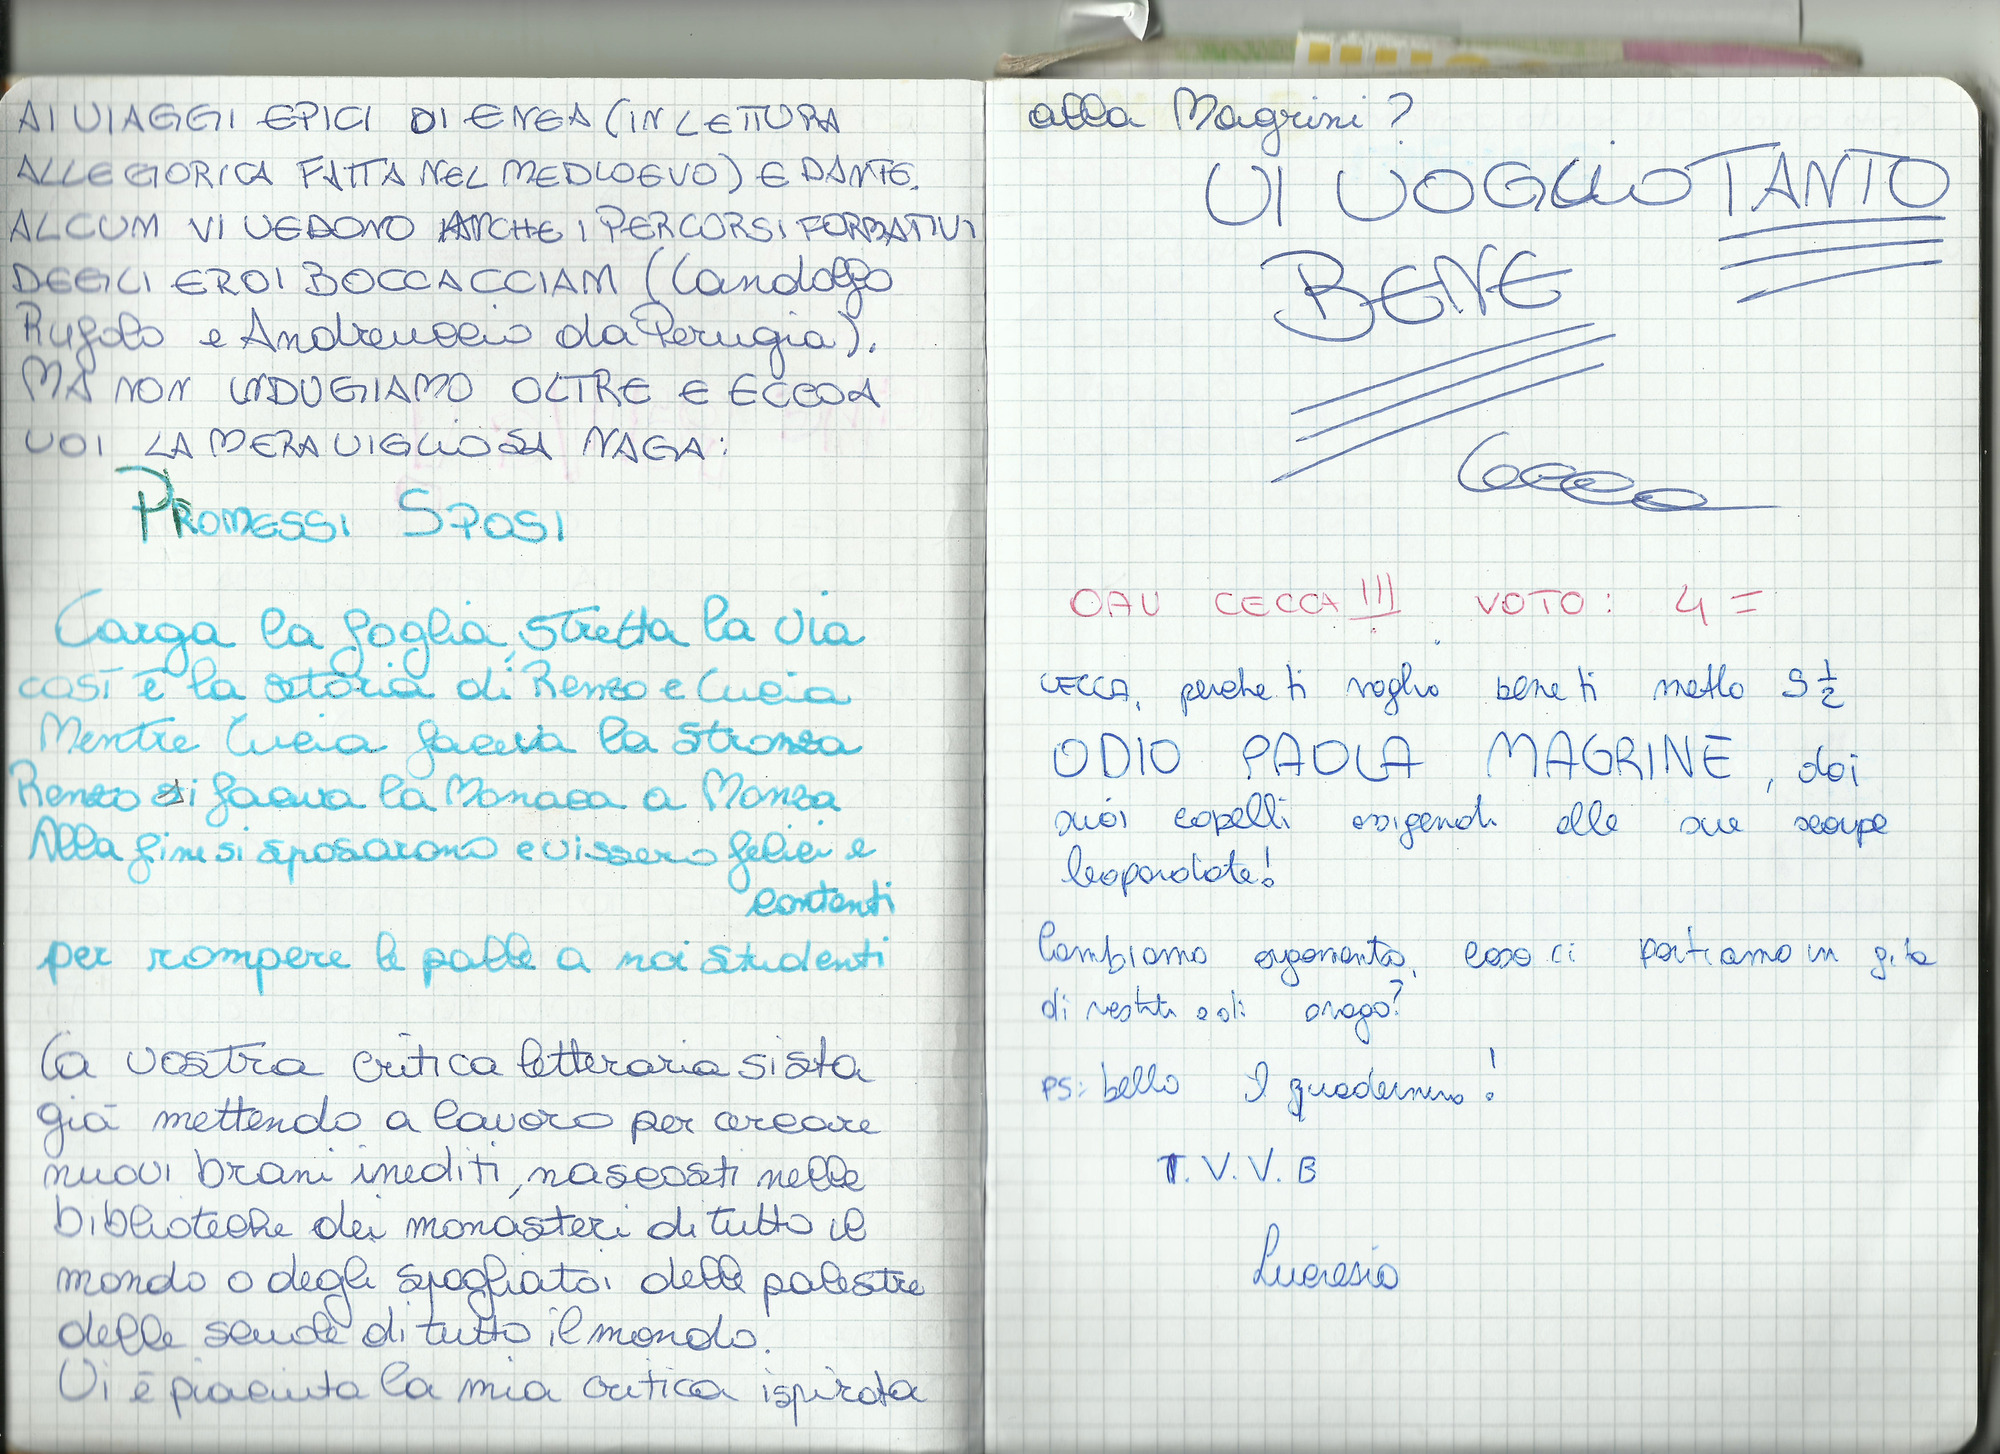 AI VIAGGI EPICI DI ENEA (IN LETTURA
ALLEGORICA FATTA NEL MEDIOEVO) E DANTE.
ALCUNI VI VEDONO ANCHE I PERCORSI FORMATIVI
DEGLI EROI BOCCACCIANI (Landolfo
Rufolo e Andreuccio da Perugia).
MA NON INDUGIAMO OLTRE E ECCO A
VOI LA MERAVIGLIOSA NAGA:
PROMESSI SPOSI
Larga la foglia, stretta la via
così è la storia di Renzo e Lucia
Mentre Lucia faceva la stronza
Renzo si faceva la Monaca a Monza
Alla fine si sposarono e vissero felici e
contenti
per rompere le palle a noi studenti
La vostra critica letteraria si sta
già mettendo a lavoro per creare
nuovi brani inediti, nascosti nelle
biblioteche dei monasteri di tutto il
mondo o degli spogliatoi delle palestre
delle scuole di tutto il mondo.
Vi è piaciuta la mia critica ispirata
alla Magrini?
VI VOGLIO TANTO
BENE
Cecca
CECCA!!! VOTO: 4=
CECCA, perche ti voglio bene ti metto 5 1/2
ODIO PAOLA MAGRINE, dai
suoi capelli ossigenati alle sue scarpe
leopardate!
Cambiamo argomento, cosa ci portiamo in gita
di vestiti a
PS: bello il quadernino!
T.V.V.B
Lucrezia